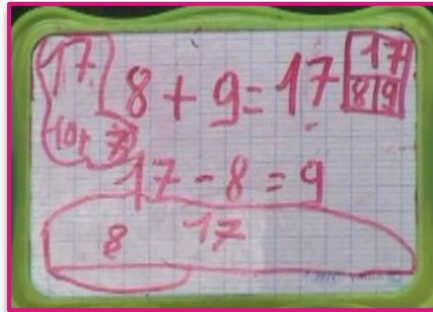 17
10+ 7
8 + 9 = 17
17
8 9
17 - 8 = 9
8 17